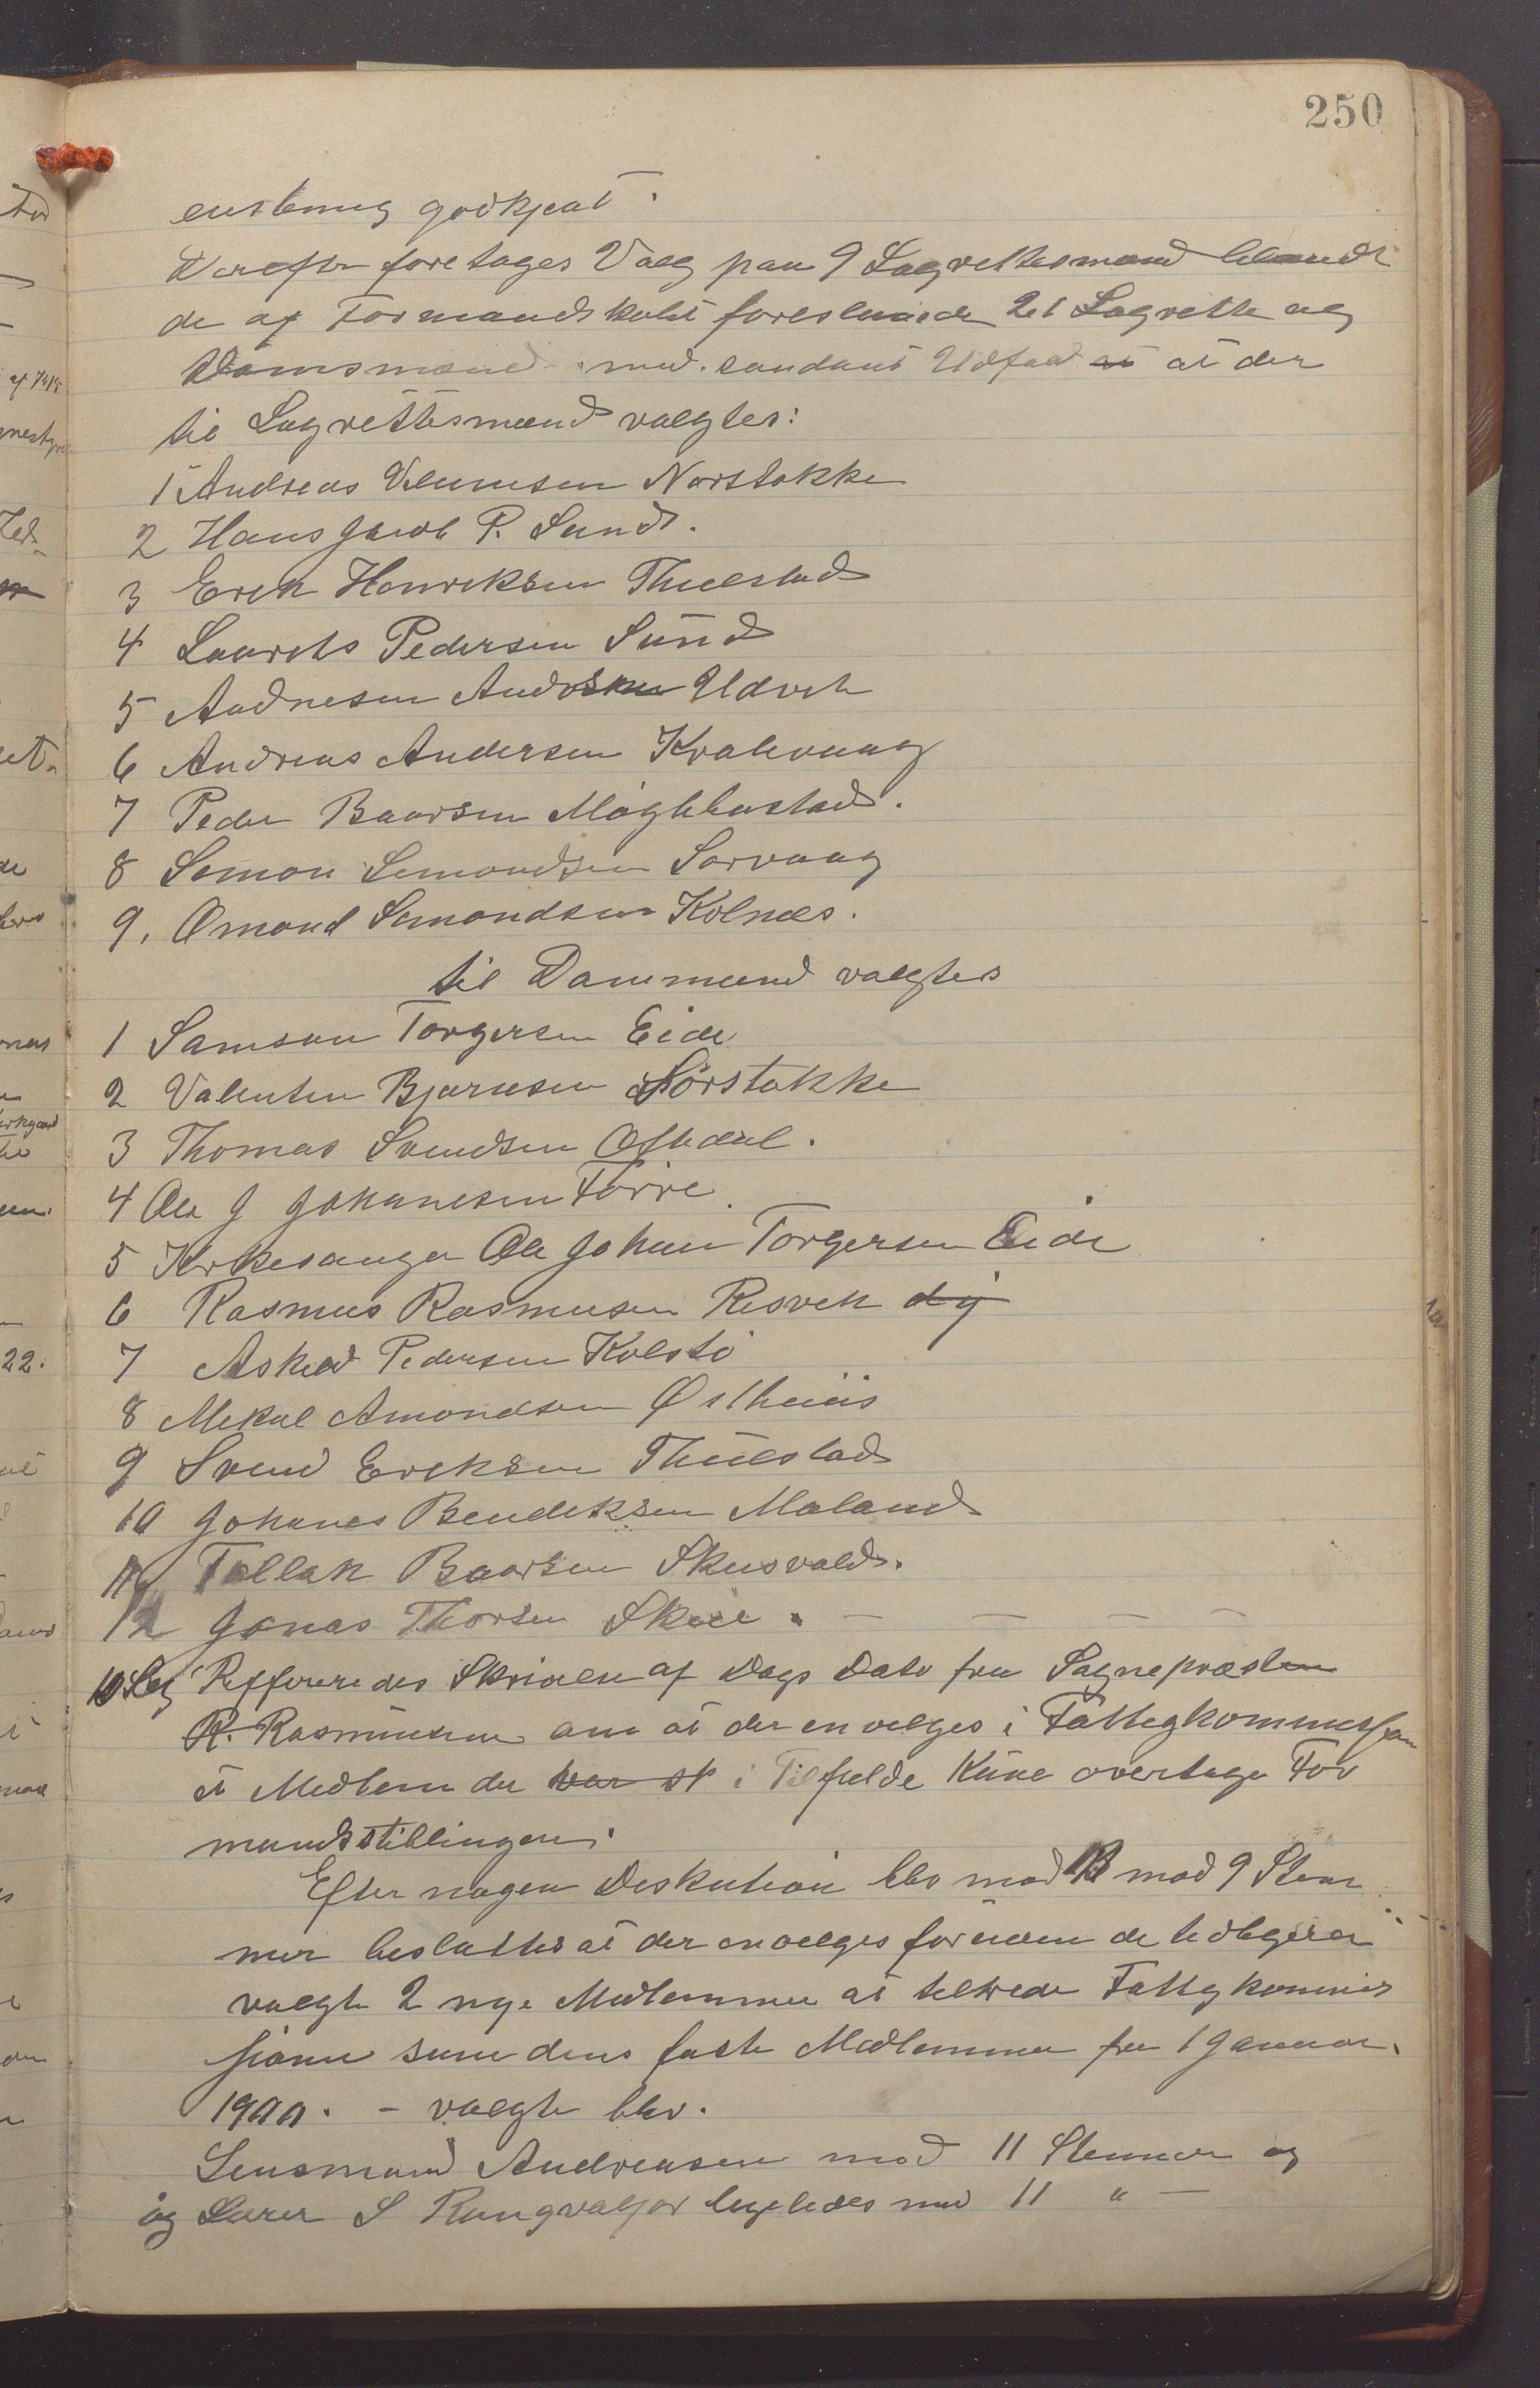 250
enstemig godkjent.
Derefter foretages Valg paa 9 Lagrettesmænd blandt
de af Formandskabet foreslaaede til Lagrette og
Domsmænd med saadant Udfald at at der
til Lagrettesmænd valgtes:
1 Andreas Villumsen Norstokke
2 Hans Jacob P. Sund.
3 Erik Henriksen Thuestad
4 Laurits Pedersen Sund
5 Andreas Udvik
6 Andreas Andersen Kvalevaag
7 Peder Baarsen Møglebustad.
8 Simon Simondsen Sørvaag
9. Omond Simondsen Kolnes.
til Dommænd valgtes
1 Samson Torgersen Eide
2 Valentin Bjarnesen Sørstokke
3 Thomas Svendsen Oftedal.
4 Ole J Johanesen Førre.
5 Kirkesanger Ole Johan Torgersen Eide
6 Rasmus Rasmusen Risvik
7 Askild Pedersen Kolstø
8 Mikal Amondsen Østhuus
9 Svend Eriksen Thuestad
10 Johanes Bendiksen Maland
11 Tollak Baarsen Skeisvold.
12 Jonas Thorsen Skeie. — — — —
10 Sag Refereredes Skrivelse af Dags Dato fra Sognepræsten
R. Rasmusen om at der envelges i Fattigkommissjon
et Medlem der var st i Tilfelde Kune overtage For
mandsstillingen.
Efter nogen Diskution blev mod 13 mod 9 Stem
mer besluttes at der envelges foruden de tidligere
valgte 2 nye Medlemmer at tiltrede Fattigkommis
sionen som dens faste Medlemmer fra 1 Januar.
1900. – valgte blev.
Lensmand Andreasen med 11 Stemmer og
og Lærer S Rangvaldjor ligeledes med 11 " —